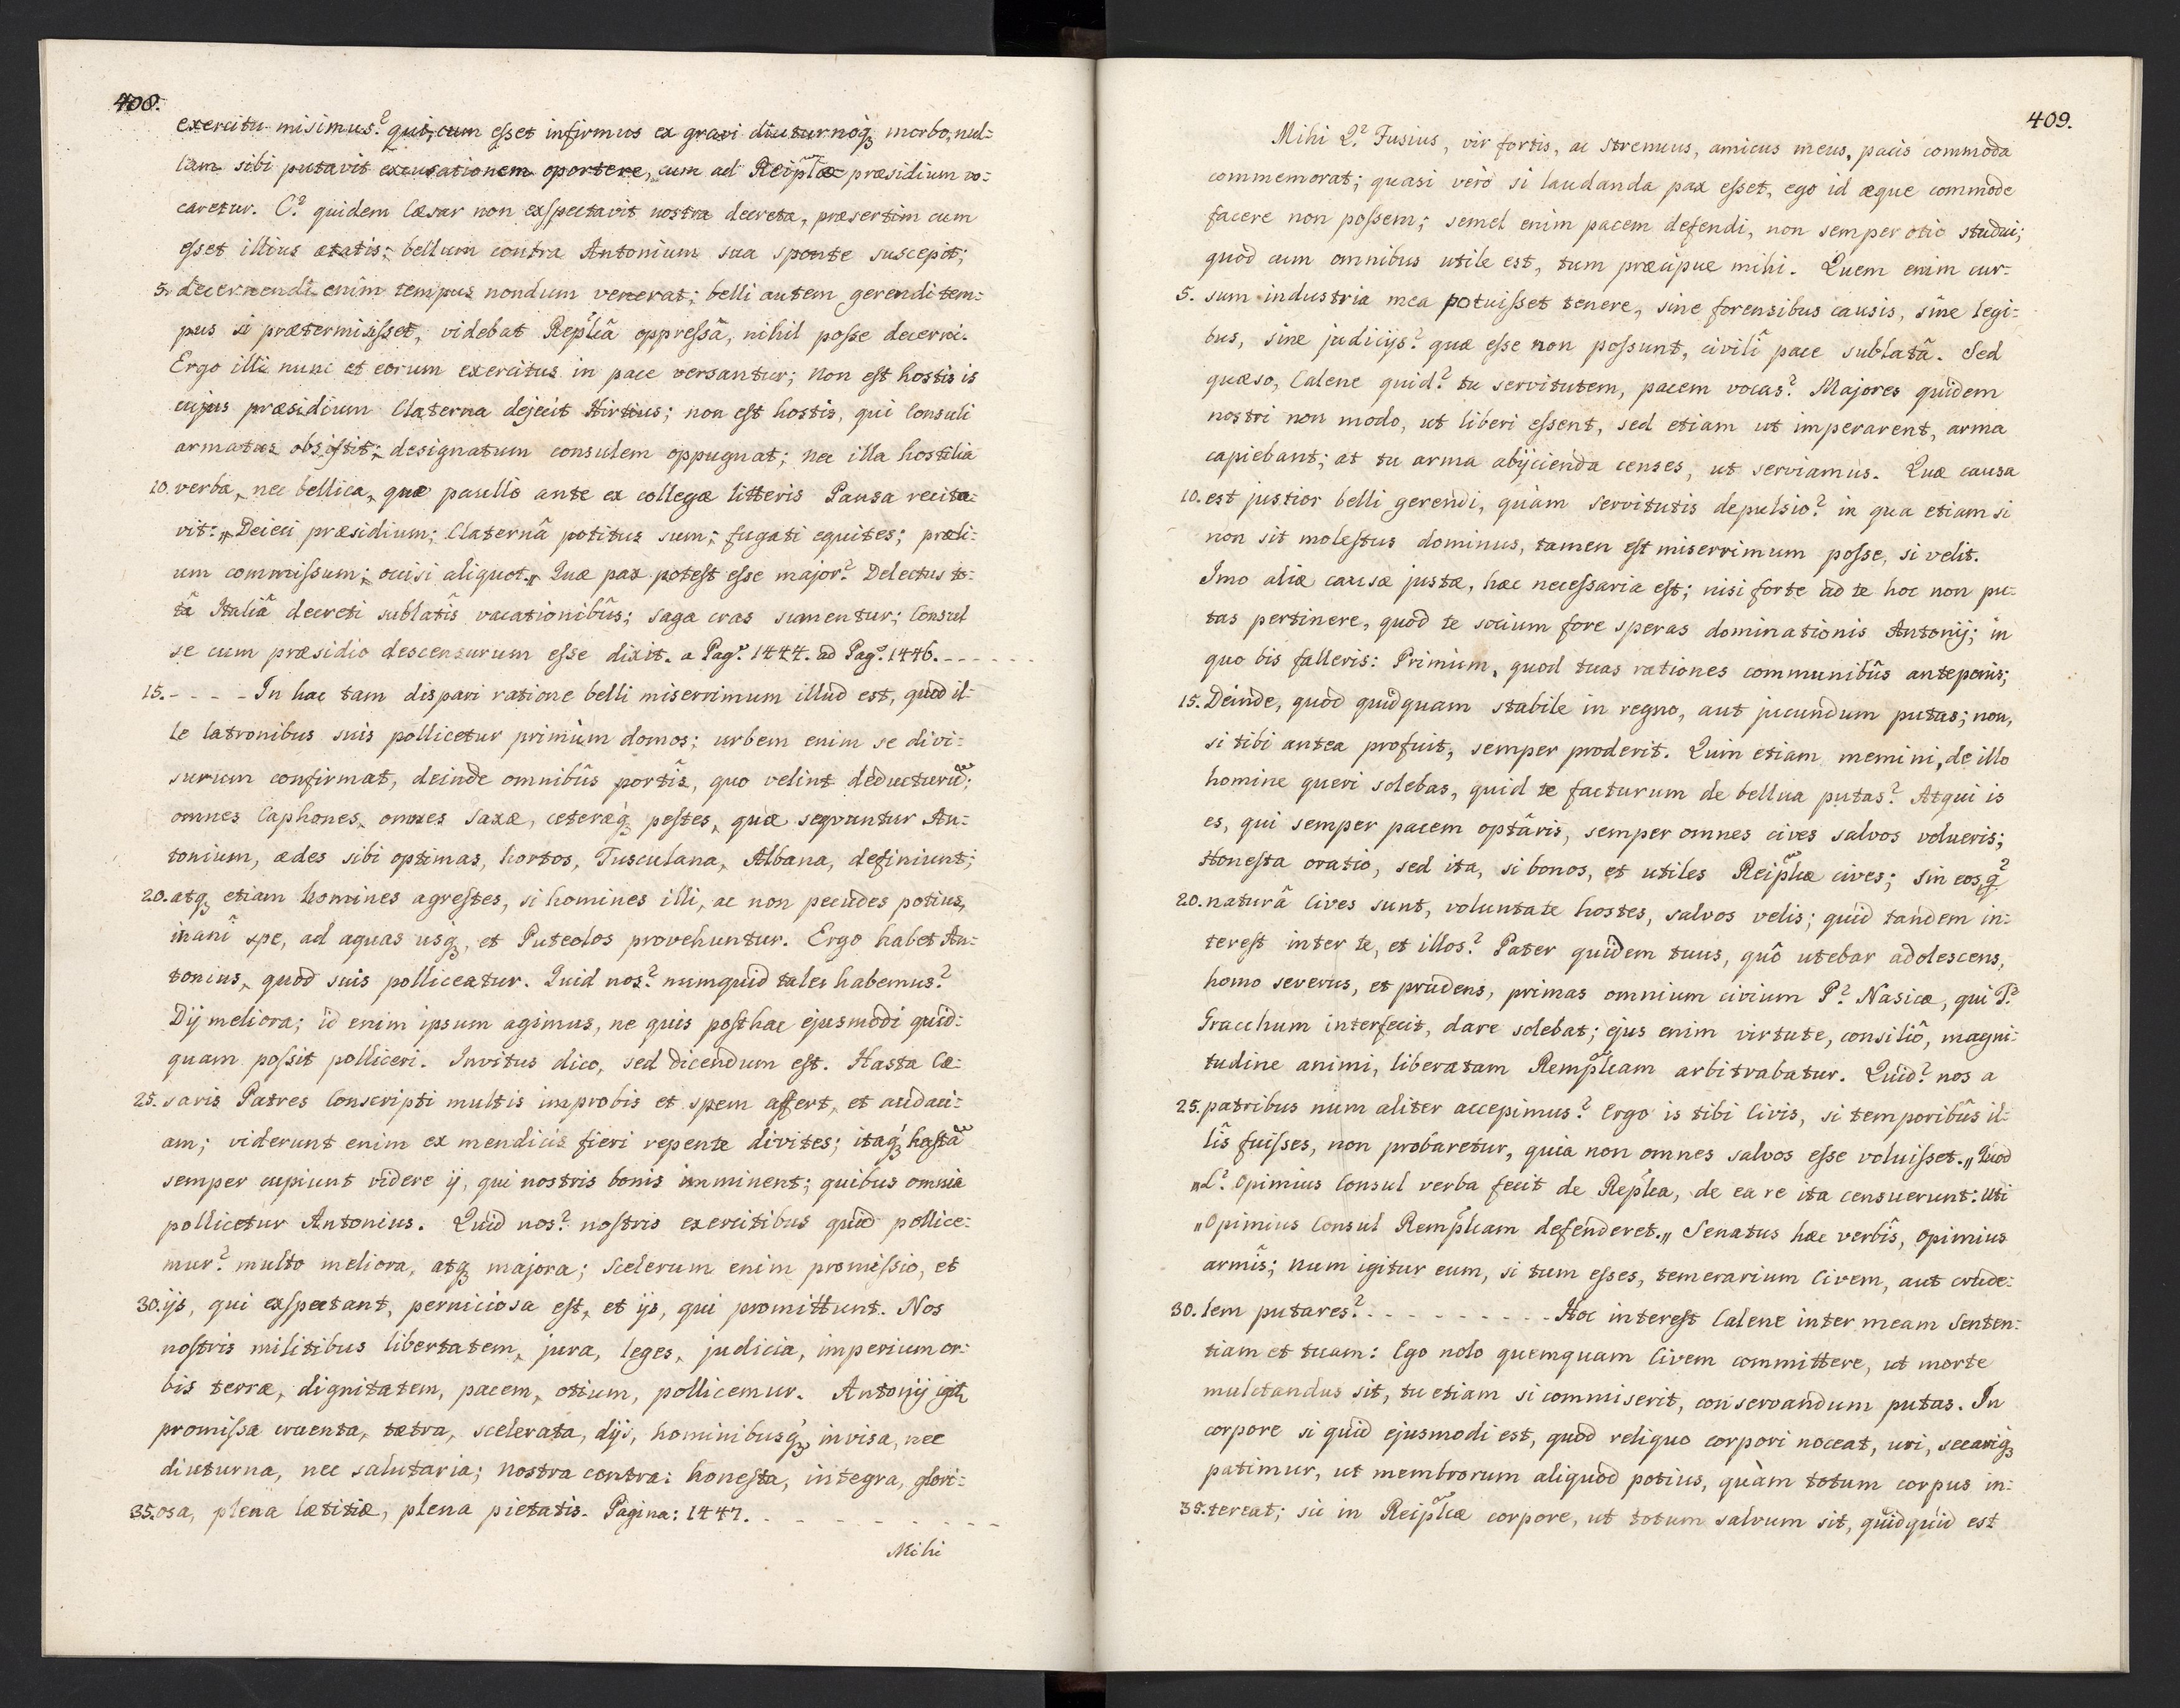 408.
exercitu misimus? qui, cum eſset infirmus ex gravi diuturnoq́ꝫ morbo, nul-
lam sibi putavit excusationem oportere, cum ad Reiplæ præsidium vo-
caretur. C? quidem Cæsar non exſpectavit vostra decreta, præsertim cum
eſset illius ætatis; bellum contra Antonium sua sponte suscepit;
5. decernendi enim tempus nondum venerat; belli autem gerendi tem-
pus si prætermisiſset, videbat Replicâ oppreſsâ, nihil poſse decerni.
Ergo illi nunc et eorum exercitus in pace versantur; non eſt hostis is
cujus præsidium Claterna dejecit Hirtius; non eſt hostis, qui Consuli
armatus obsiſtit; designatum consulem oppugnat; nec illa hostilia
10. verba, nec bellica, quæ paullo ante ex collegæ litteris Pansa recita-
vit: „Deieci præsidium; Claternâ potitus sum; fugati equites; præli-
um commiſsum; occisi aliquot.„ Quæ pax poteſt eſse major? Delectus to-
tâ Italiâ decreti sublatîs vacationibûs; saga cras sumentur; Consul
se cum præsidio descensurum eſse dixit. a Pag? 1444. ad Pag? 1446. - - - - - -
15. - - - - In hac tam dispari ratione belli miserrimum illud est, quod il-
le latronibus suis pollicetur primùm domos; urbem enim se divi-
surum confirmat, deinde omnibûs portîs, quo velint deducturũ;
omnes Caphones, omnes Saxæ, ceteræq́ꝫ peſtes, quæ seqvuntur An-
tonium, ædes sibi optimas, hortos, Tusculana, Albana, definiunt;
20. atqꝫ etiam homines agreſtes, si homines illi, ac non pecudes potius,
inanî spe, ad aquas usqꝫ, et Puteolos provehuntur. Ergo habet An-
tonius, quod suis polliceatur. Quid nos? numquid tales habemus?
Dij meliora; id enim ipsum agimus, ne quis poſthac ejusmodi quid-
quam poſsit polliceri. Invitus dico, sed dicendum eſt. Hasta Cæ-
25. saris Patres Conscripti multis improbis et spem affert, et audaci-
am; viderunt enim ex mendicis fieri repente divites; itaq́ꝫ haſtã
semper cupiunt videre ij, qui nostris bonis imminent; quibus omnia
pollicetur Antonius. Quid nos? noſtris exercitibus quid pollice-
mur? multo meliora, atqꝫ majora; Scelerum enim promiſsio, et
30. ijs, qui exſpectant, perniciosa eſt, et ijs, qui promittunt. Nos
noſtris militibus libertatem, jura, leges, judicia, imperium or-
bis terræ, dignitatem, pacem, otium, pollicemur. Antonij igit
promiſsa cruenta, tætra, scelerata, dijs, hominibusq́ꝫ invisa, nec
diuturna, nec salutaria; nostra contra: honeſta, integra, glori-
35. osa, plena lætitiæ, plena pietatis. Pagina: 1447. - - - - - - - -
Mihi
409.
Mihi Q? Fusius, vir fortis, ac strenuus, amicus meus, pacis commoda
commemorat; quasi verò si laudanda pax eſset, ego id æque commode
facere non poſsem; semel enim pacem defendi, non semper otio studui;
quod cum omnibus utile est, tum præcipue mihi. Quem enim cur-
5. sum industria mea potuiſset tenere, sine forensibus causis, sine legi-
bus, sine judicijs? quæ eſse non poſsunt, civilî pace sublatâ. Sed
quæso, Calene quid? tu servitutem, pacem vocas? Majores quidem
nostri non modo, ut liberi eſsent, sed etiam ut imperarent, arma
capiebant; at tu arma abijcienda censes, ut serviamus. Quæ causa
10. est justior belli gerendi, quàm servitutis depulsio? in qua etiam si
non sit moleſtus dominus, tamen eſt miserrimum poſse, si velit.
Imo aliæ causæ justæ, hæc neceſsaria eſt; nisi forte ad te hoc non pu-
tas pertinere, quòd te socium fore speras dominationis Antonij; in
quo bis falleris: Primùm, quod tuas rationes communibûs anteponis;
15. Deinde, quòd quidquam stabile in regno, aut jucundum putas; non,
si tibi antea profuit, semper proderit. Quin etiam memini, de illo
homine queri solebas, quid te facturum de bellua putas? Atqui is
es, qui semper pacem optâris, semper omnes cives salvos volueris;
Honeſta oratio, sed ita, si bonos, et utiles Reiplicæ cives; sin eos, q?
20. naturâ Cives sunt, voluntate hostes, salvos velis; quid tandem in-
tereſt inter te, et illos? Pater quidem tuus, quô utebar adolescens,
homo severus, et prudens, primas omnium civium P? Nasicæ, qui T?
Gracchum interfecit, dare solebat; ejus enim virtute, consiliô, magni-
tudine animi, liberatam Remplicam arbitrabatur. Quid? nos a
25. patribus num aliter accepimus? Ergo is tibi Civis, si temporibûs il-
lîs fuiſses, non probaretur, quia non omnes salvos eſse voluiſset. „Quod
„L? Opimius Consul verba fecit de Replica, de ea re ita censuerunt: Uti
„Opimius Consul Remplicam defenderet.„ Senatus hæc verbîs, Opimius
armîs; num igitur eum, si tum eſses, temerarium Civem, aut crude-
30. lem putares? - - - - - - - - - - Hoc intereſt Calene inter meam Senten-
tiam et tuam: Ego nolo quemquam Civem committere, ut morte
mulctandus sit, tu etiam si commiserit, conservandum putas. In
corpore si quid ejusmodi est, quod reliquo corpori noceat, uri, secariqꝫ
patimur, ut membrorum aliquod potius, quàm totum corpus in-
35. tereat; sic in Reiplicæ corpore, ut totum salvum sit, quidquid est